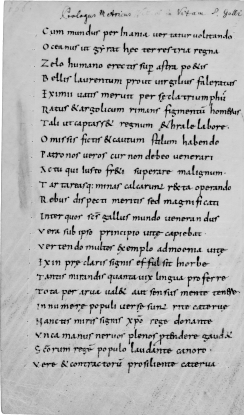 Prologus Metricus in Vitam S. Galli
Cum mundus per inania vertatur volitando
Oceanus ut girat hęc terrestria regna
Zelo humano erectis sup astra poetis
Bellis laurentum provit virgilius faleratus
Eximii vatis meruit per secla triumphū
Ratus & argolicum rimans figmentū homerus
Tali ut captass& regnum &hrale labore
Omissis fictis & cautum stilum habendo
Patronos veros cur non debeo venerari
Acta qui iusto superare malignum
Tartareasq; minas calcarunt recta operando
Rebus dispecti meritis sed magnificati
Inter quos scs gallus mundo venerandus
Vera sub ipso principio vite capiebat
vertendo multos exemplo admoenia vite
Exin praeclaris signis effulsit inorbe
Tantis mirandis quanta vix lingua proferre
Tota per arva val& aut sensus mente tenere
Innumere populi verse sunt rite caterve
Sanctis miris signis xpo rege donante
Vnca manus nervos plenos ptendere gaud&
Scorum regū populo laudante canore
Vere & contractorū prosiliente caterva